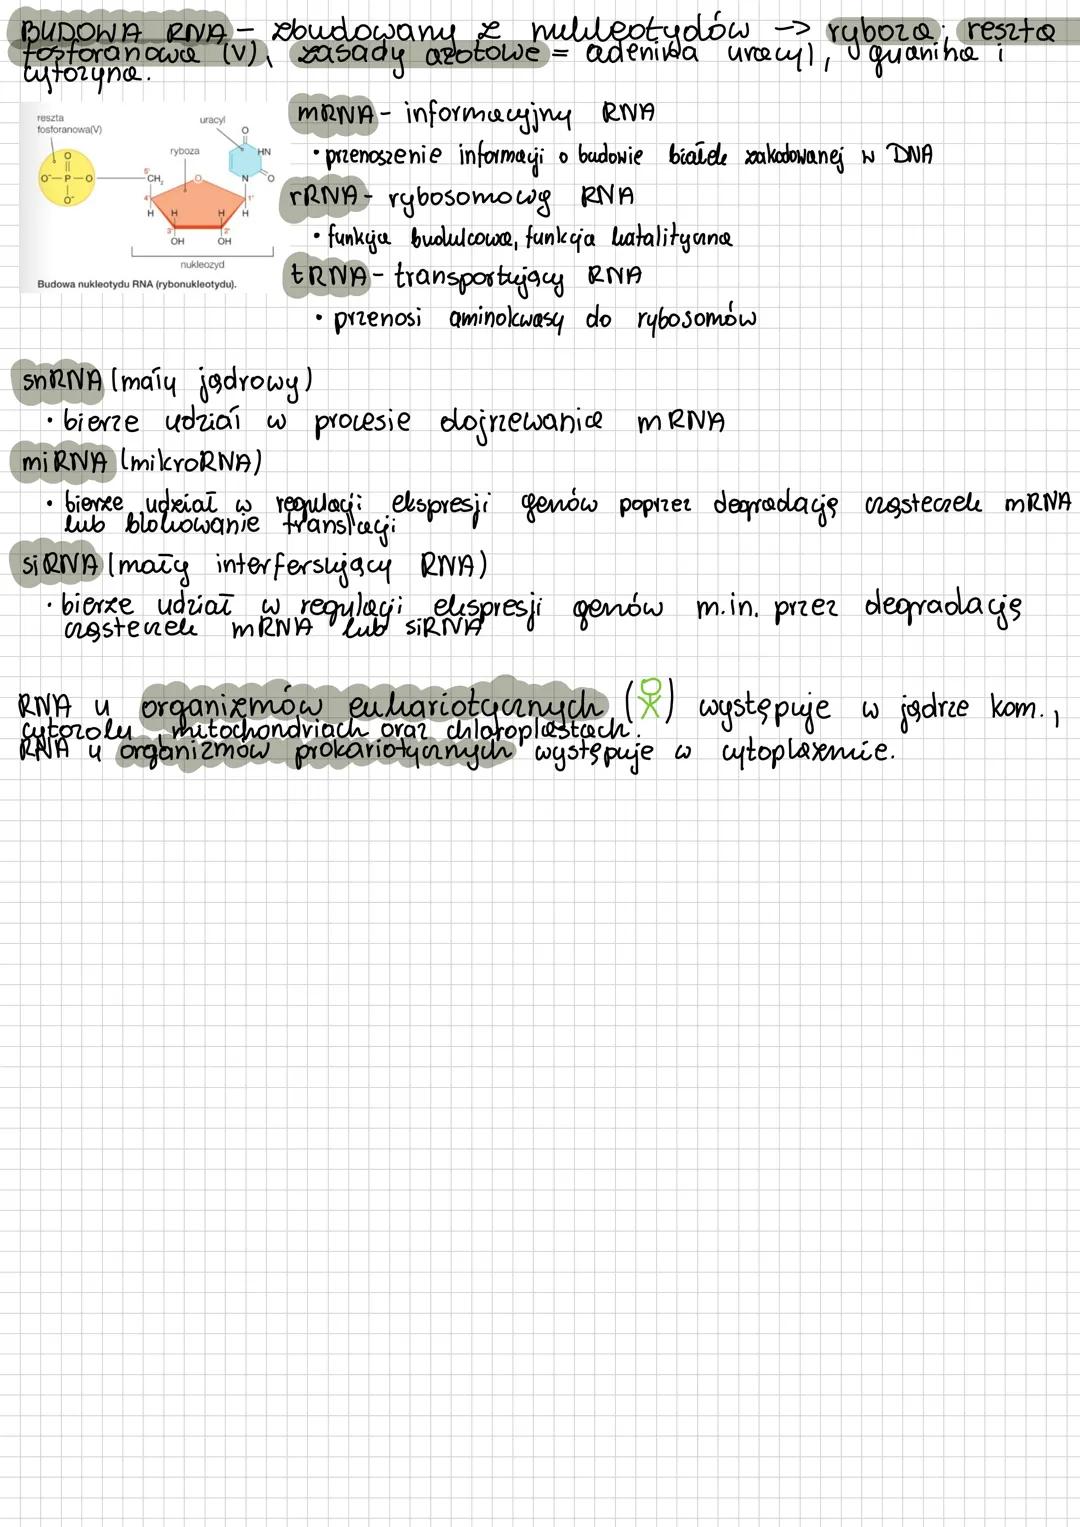 BUDOWA RNA - zbudowany z nukleotydów → ryboza; reszta
fosforanowa (V), zasady azotowe = adenina uracyl, guanina i
cytozyna.
reszta
fosforanowa(V)
uracyl
ryboza
O
O⁻—P—O
O⁻
5'
CH₂
O
O
HN
N
O
4'
1'
H
H
H
H
3'
2'
OH
OH
nukleozyd
Budowa nukleotydu RNA (rybonukleotydu).
mRNA - informacyjny RNA
• przenoszenie informacji o budowie białek zakodowanej w DNA
rRNA - rybosomowy RNA
• funkcja budulcowa, funkcja katalityczna
tRNA - transportujący RNA
• przenosi aminokwasy do rybosomów
snRNA (mały jądrowy)
• bierze udział w procesie dojrzewania mRNA
miRNA (mikroRNA)
• bierze udział w regulacji ekspresji genów poprzez degradację cząsteczek mRNA
lub blokowanie translacji
siRNA (mały interferujący RNA)
• bierze udział w regulacji ekspresji genów m.in. przez degradację
cząsteczek mRNA lub siRNA
RNA u organizmów eukariotycznych ( ) występuje w jądrze kom.,
cytozolu mitochondriach oraz chloroplastach.
RNA u organizmów prokariotycznych występuje w cytoplazmie.